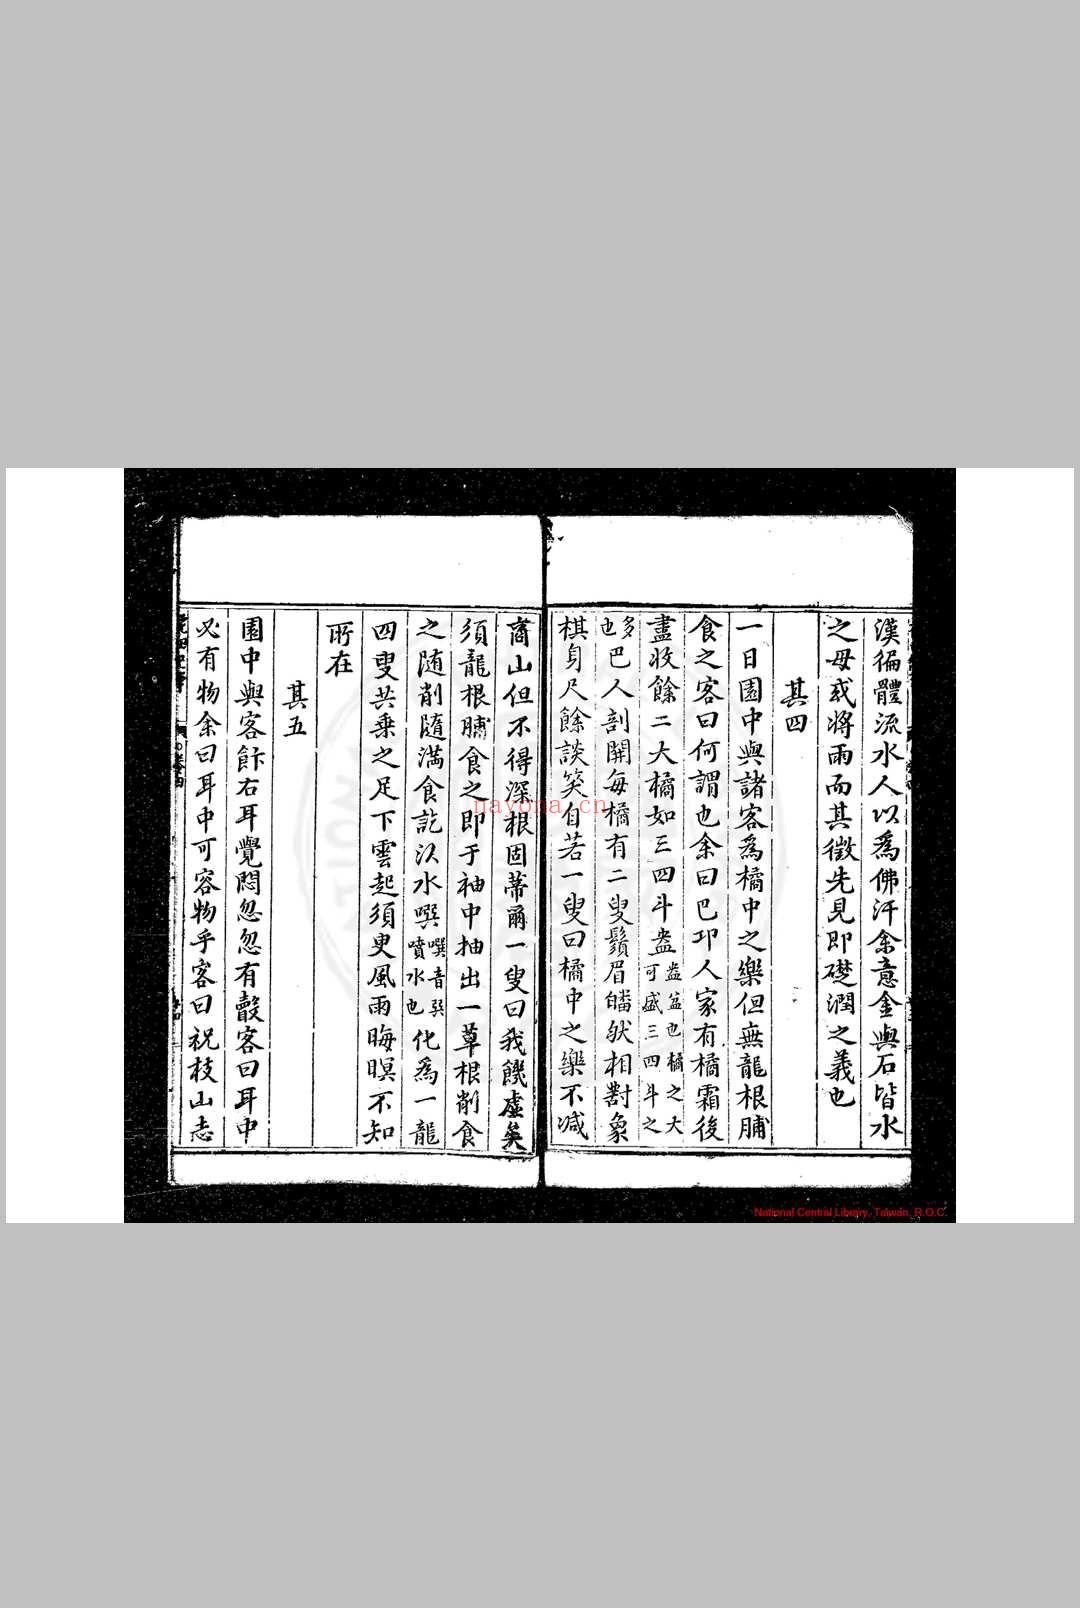 漢徧體流水人以爲佛汗余意金與石皆水
之母或將雨而其徵先見即礎潤之義也
其四
一日園中與諸客爲橘中之樂但無龍根脯
食之客曰何謂也余曰巴邛人家有橘霜後
盡收餘二大橘如三四斗盎盎盆也橘之大可盛三四斗之
多也巴人剖開每橘有二叟鬚眉皤然相對象
棋身尺餘談笑自若一叟曰橘中之樂不減
商山但不得深根固蒂爾一叟曰我饑虛矣
須龍根脯食之即于袖中抽出一草根削食
之隨削隨滿食訖以水噀噀音巽噴水也化爲一龍
四叟共乘之足下雲起須臾風雨晦暝不知
所在
其五
園中與客飰右耳覺悶忽忽有轂客曰耳中
必有物余曰耳中可容物乎客曰祝枝山志
nayona.cn
National Central Library, Taiwan, R.O.C.